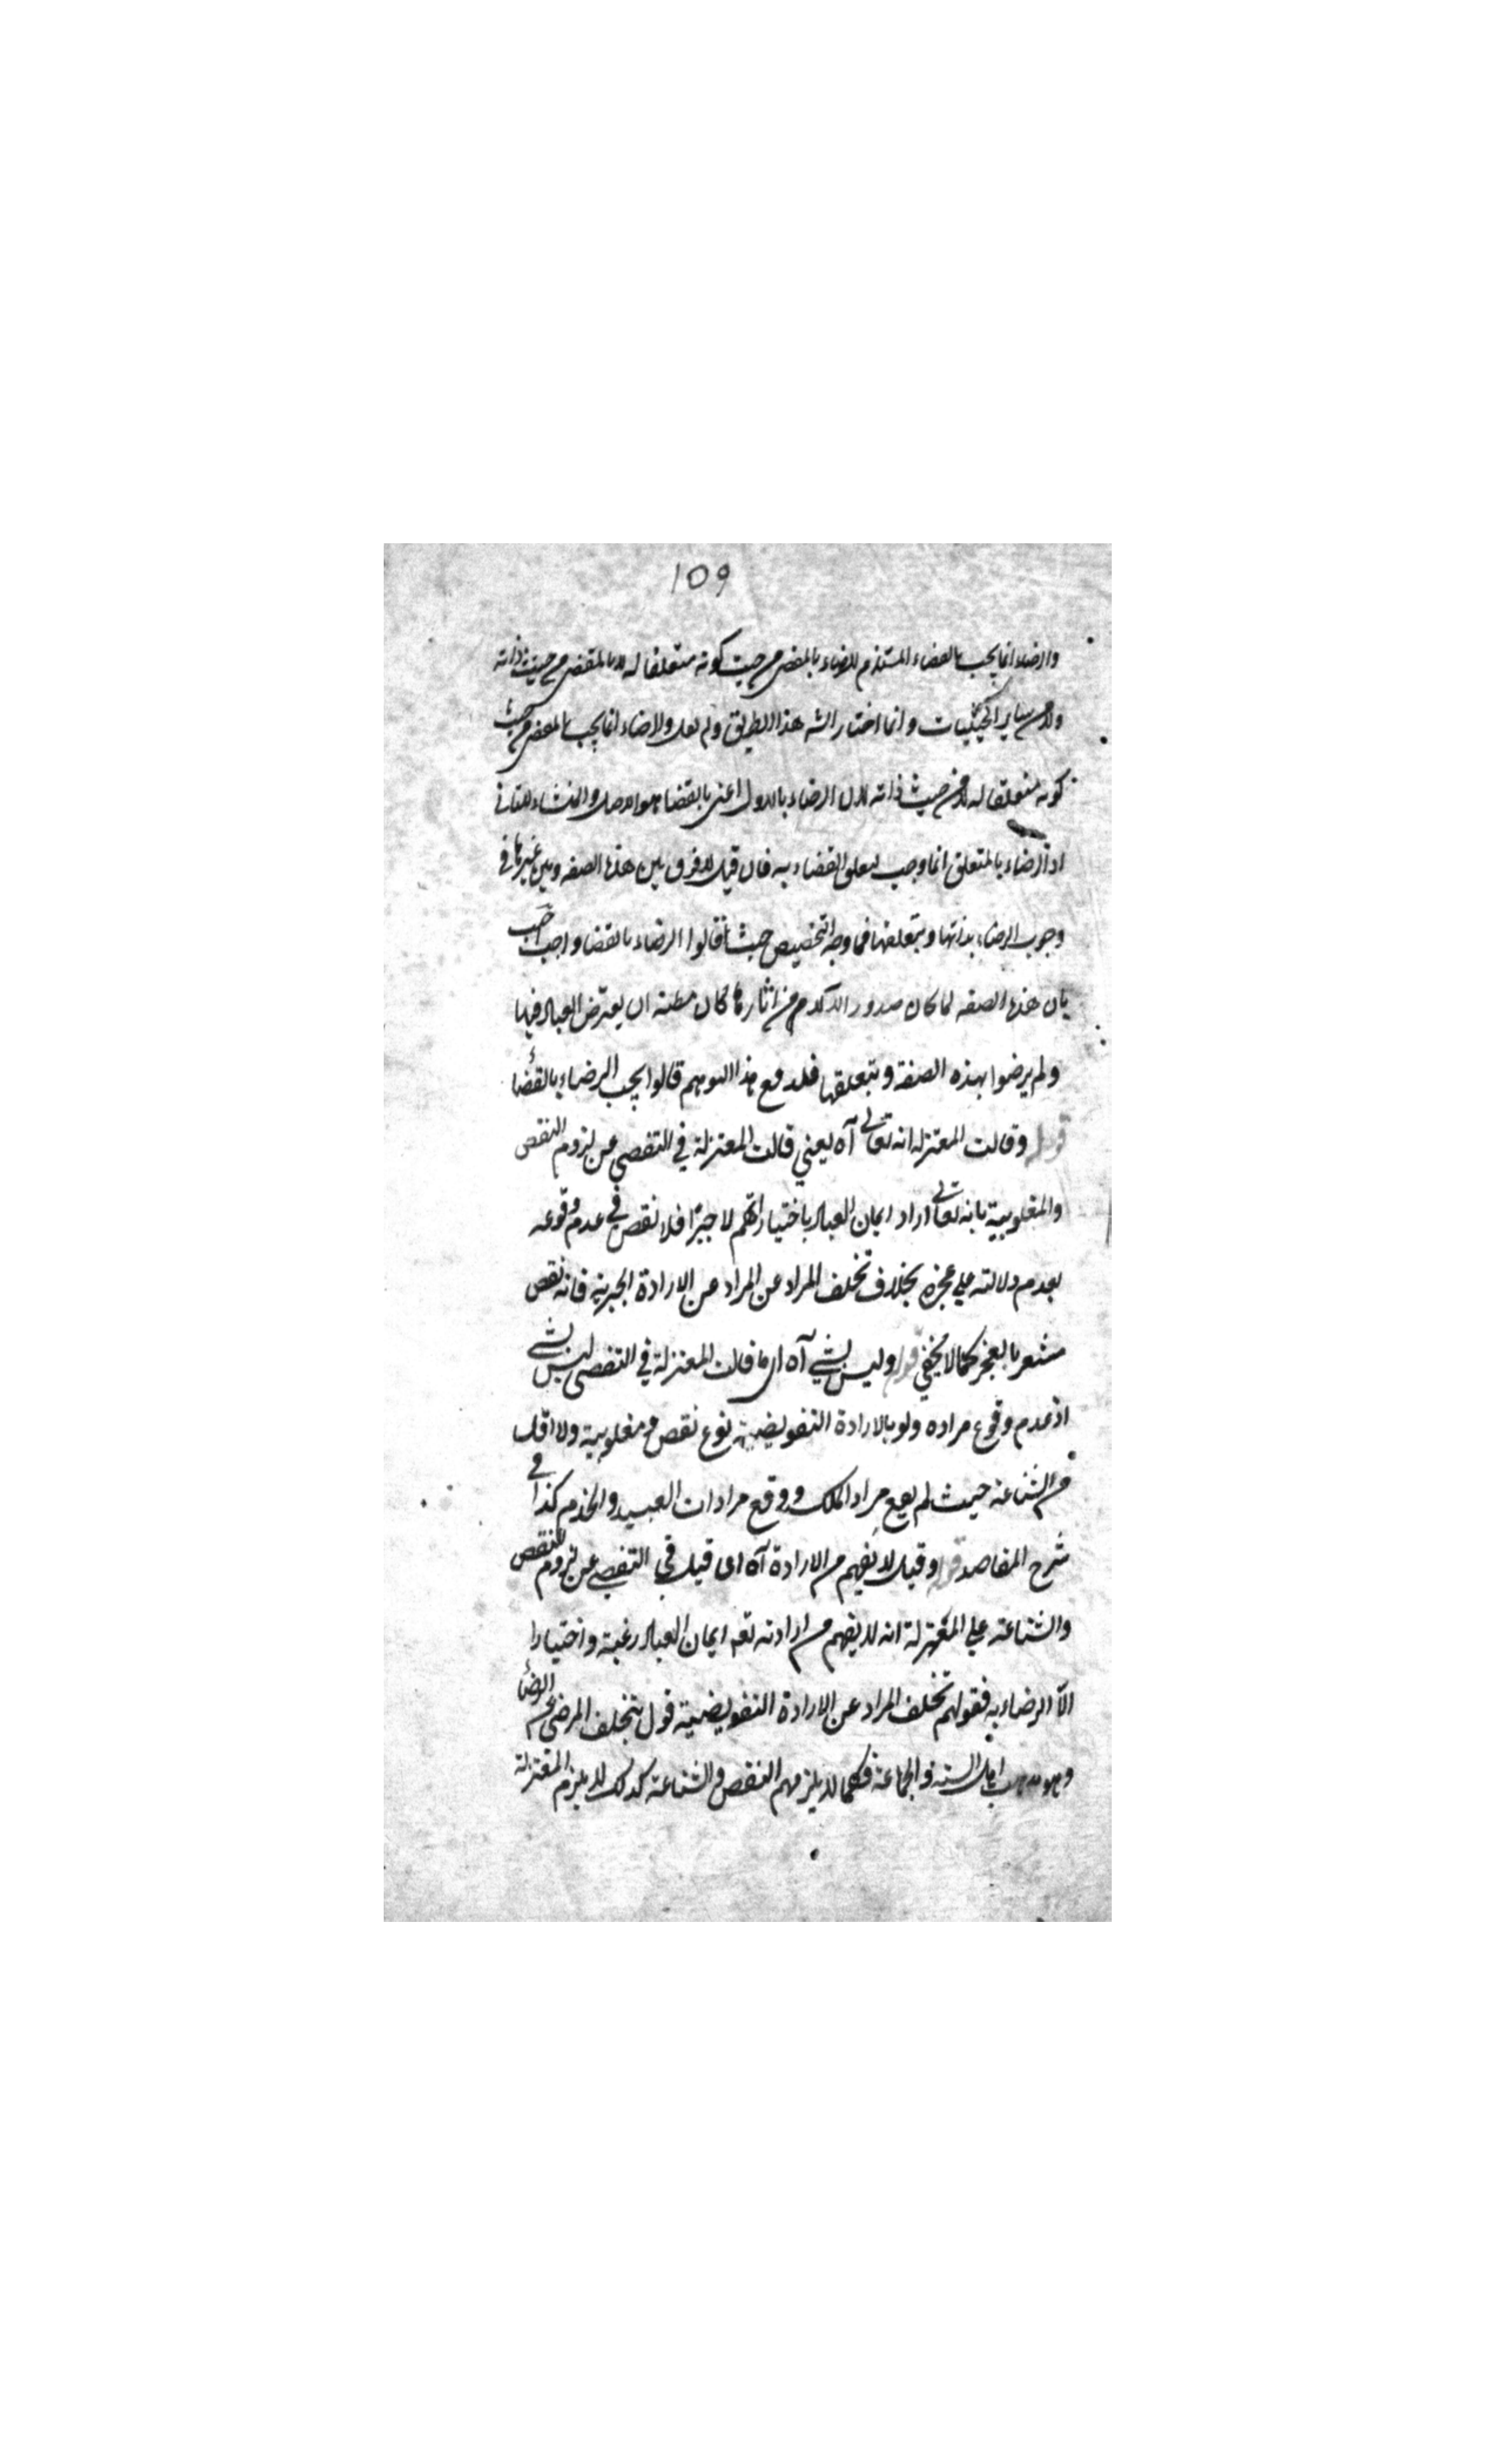 ١٥٩
والرضاء انما يجب بالقضاء المستلزم للرضاء بالمقضى من حيث كونه متعلقا له لا بالمقضى من حيث ذاته
ولا من ساير الحيثيات وانما اختار الشه هذا الطريق ولم يقل والرضاء انما يجب بالمقضى من حيث
كونه متعلقا له لا من حيث ذاته لان الرضاء بالاول اعنى بالقضا هو الاصل والمنشاء للثانى
اذ الرضاء بالمتعلق انما وجب لتعلق القضاء به فان قيل لا فرق بين هذه الصفه وبين غيرها فى
وجوب الرضاء بذاتها وبتعلقها فما وجه التخصيص حيث قالوا الرضاء بالقضا واجب اجيب
بان هذه الصفه لما كان صدور الآلام من اثارها كان مظنه ان يعترض العباد فيها
ولم يرضوا بهذه الصفة وبتعلقها فلدفع هذا التوهم قالوا يجب الرضاء بالقضاء
قوله وقالت المعتزله انه تعالى آه يعني قالت المعتزلة في التفصى عن لزوم النقص
والمغلوبية بانه تعالى اراد ايمان العباد باختيارهم لا جبرًا فلا نقص في عدم وقوعه
لعدم دلالته علي عجزه بخلاف تخلف المراد عن المراد عن الارادة الجبرية فانه نقص
مشعر بالعجز كما لا يخفي قوله وليس بشي آه اى ما قالت المعتزلة في التفصى ليس بشي
اذ عدم وقوع مراده ولو بالارادة التفويضية نوع نقص و مغلوبية ولا اقل
من الشناعة حيث لم يقع مراد الملك ووقع مرادات العبيد والخدم كذا في
شرح المقاصد قوله وقيل لا يفهم من الارادة آه اى قيل في التفصى عن لزوم النقص
والشناعة علي المعتزلة انه لا يفهم من ارادته تعه ايمان العباد رغبة واختيارا
الا الرضاء به فقولهم تخلف المراد عن الارادة التفويضية قول بتخلف المرضى عن الرضا
وهو مذهب اهل السنه والجماعة فكما لا يلزمهم النقص والشناعة كذلك لا يلزم المعتزلة